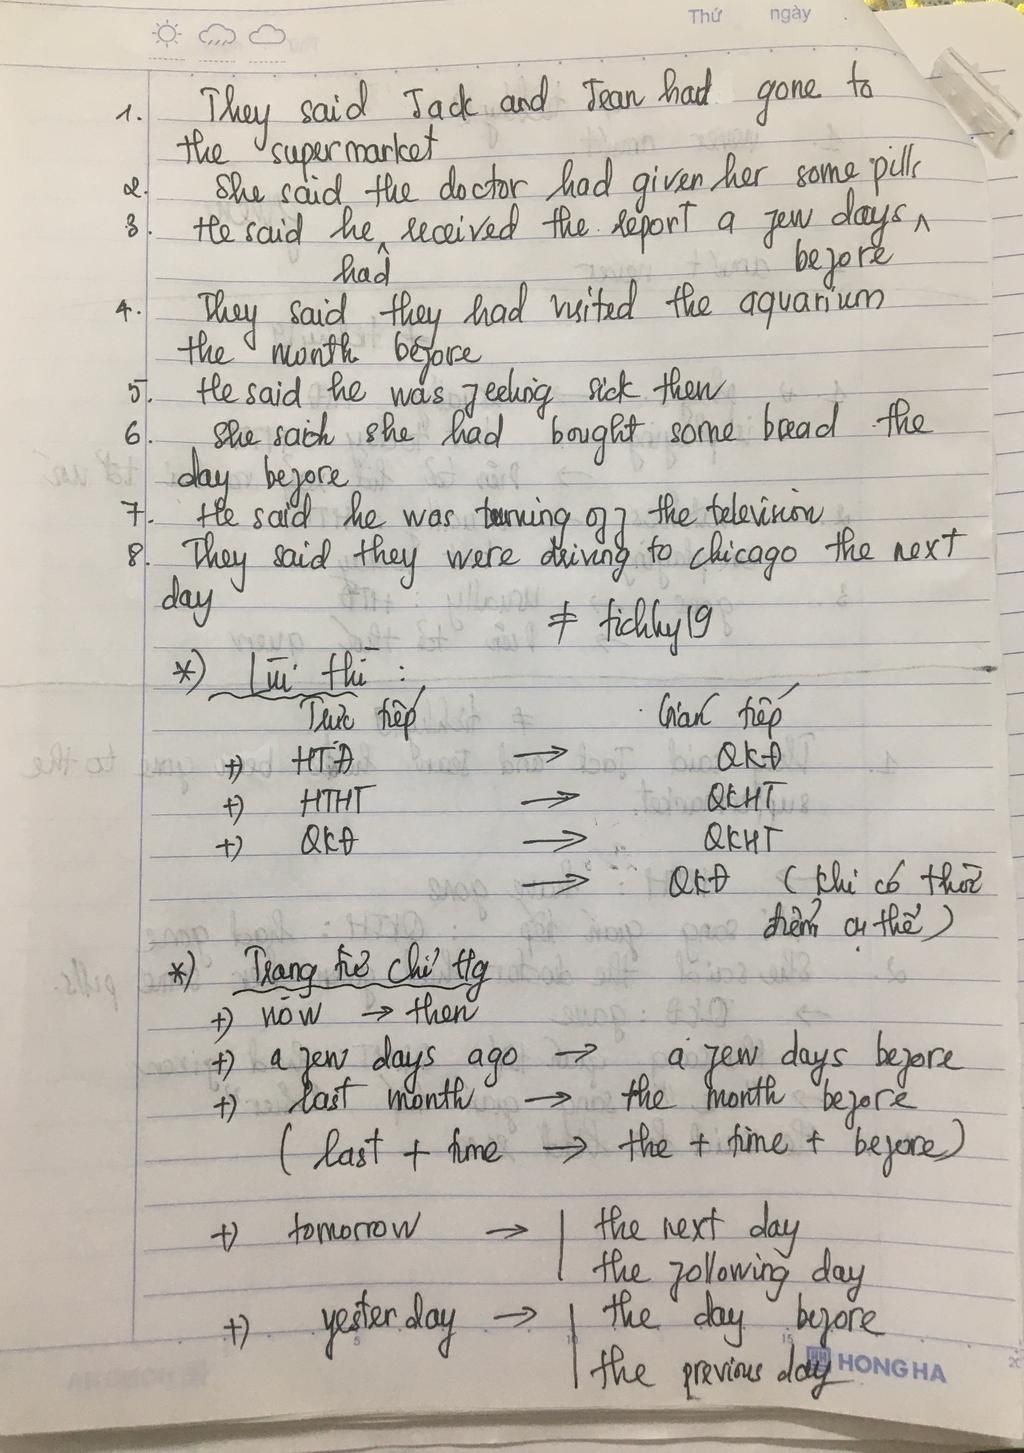 Thứ ngày
1. They said Jack and Jean had gone to
the supermarket
2. She said the doctor had given her some pills
3. He said he ^ received the report a few days ^
had before
4. They said they had visited the aquarium
the month before
5. He said he was feeling sick then
6. She said she had bought some bread the
day before
7. He said he was turning off the television
8. They said they were driving to chicago the next
day
≠ tichhy19
*) Lùi thì :
Trực tiếp Gián tiếp
+) HTĐ → QKĐ
+) HTHT → QKHT
+) QKĐ → QKHT
→ QKĐ ( khi có thời
điểm cụ thể )
*) Trang từ chỉ tg
+) now → then
+) a few days ago → a few days before
+) last month → the month before
( last + time → the + time + before )
+) tomorrow → the next day
the following day
+) yesterday → the day before
the previous day
HONG HA